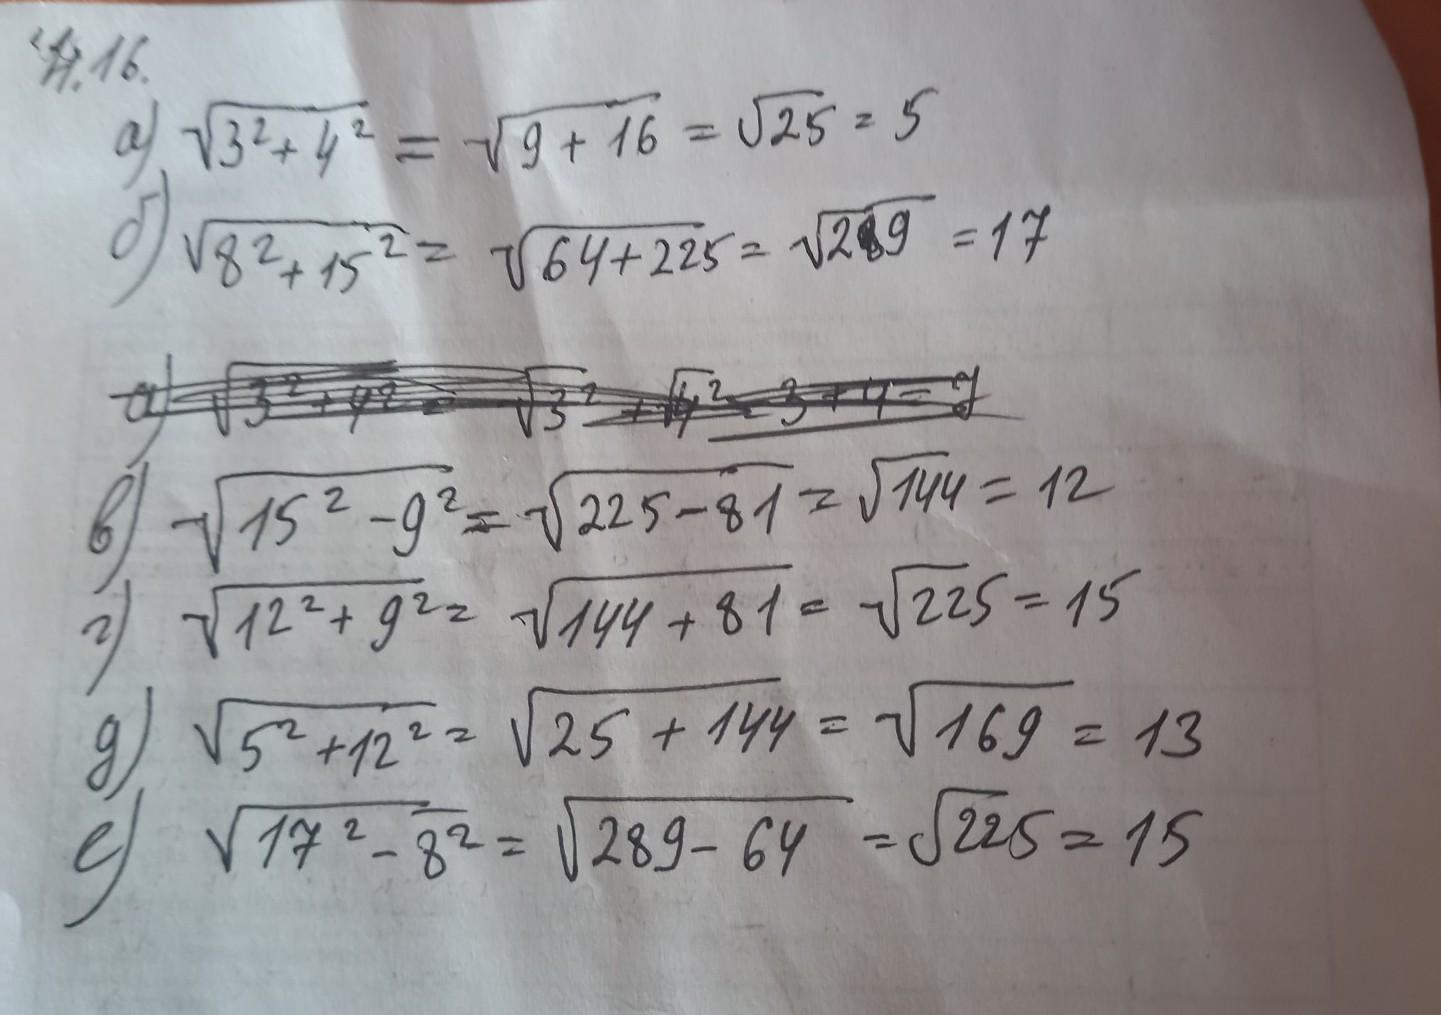 16.
а) √3² + 4² = √9 + 16 = √25 = 5
б) √8² + 15² = √64 + 225 = √289 = 17
а) √3² + 4² = √3² + √4² = 3 + 4 = 7
в) √15² - 9² = √225 - 81 = √144 = 12
г) √12² + 9² = √144 + 81 = √225 = 15
д) √5² + 12² = √25 + 144 = √169 = 13
е) √17² - 8² = √289 - 64 = √225 = 15